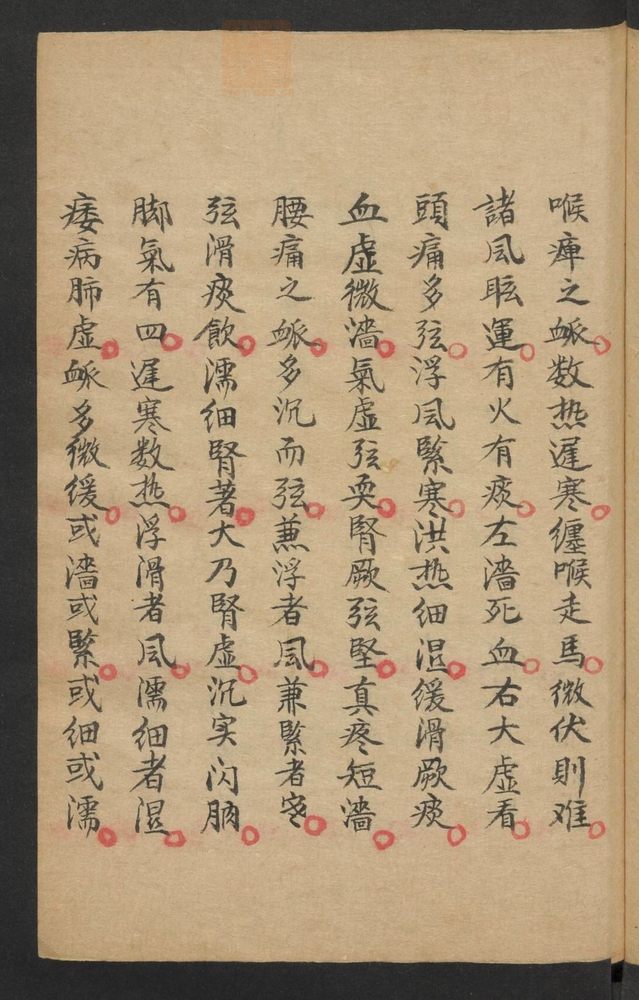 喉痺之脈数热遲寒纏喉走馬微伏則难
諸风眩運有火有痰左濇死血右大虚看
頭痛多弦浮风緊寒洪热细湿缓滑厥痰
血虚微濇氣虚弦耎腎厥弦堅真疼短濇
腰痛之脈多沉而弦兼浮者风兼緊者寒
弦滑痰飲濡细腎著大乃腎虚沉实闪肭
脚氣有四遲寒数热浮滑者风濡细者湿
痿病肺虚脈多微缓或濇或緊或细或濡